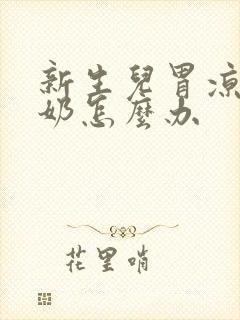 新生兒胃凉
奶怎麼办
花里哨